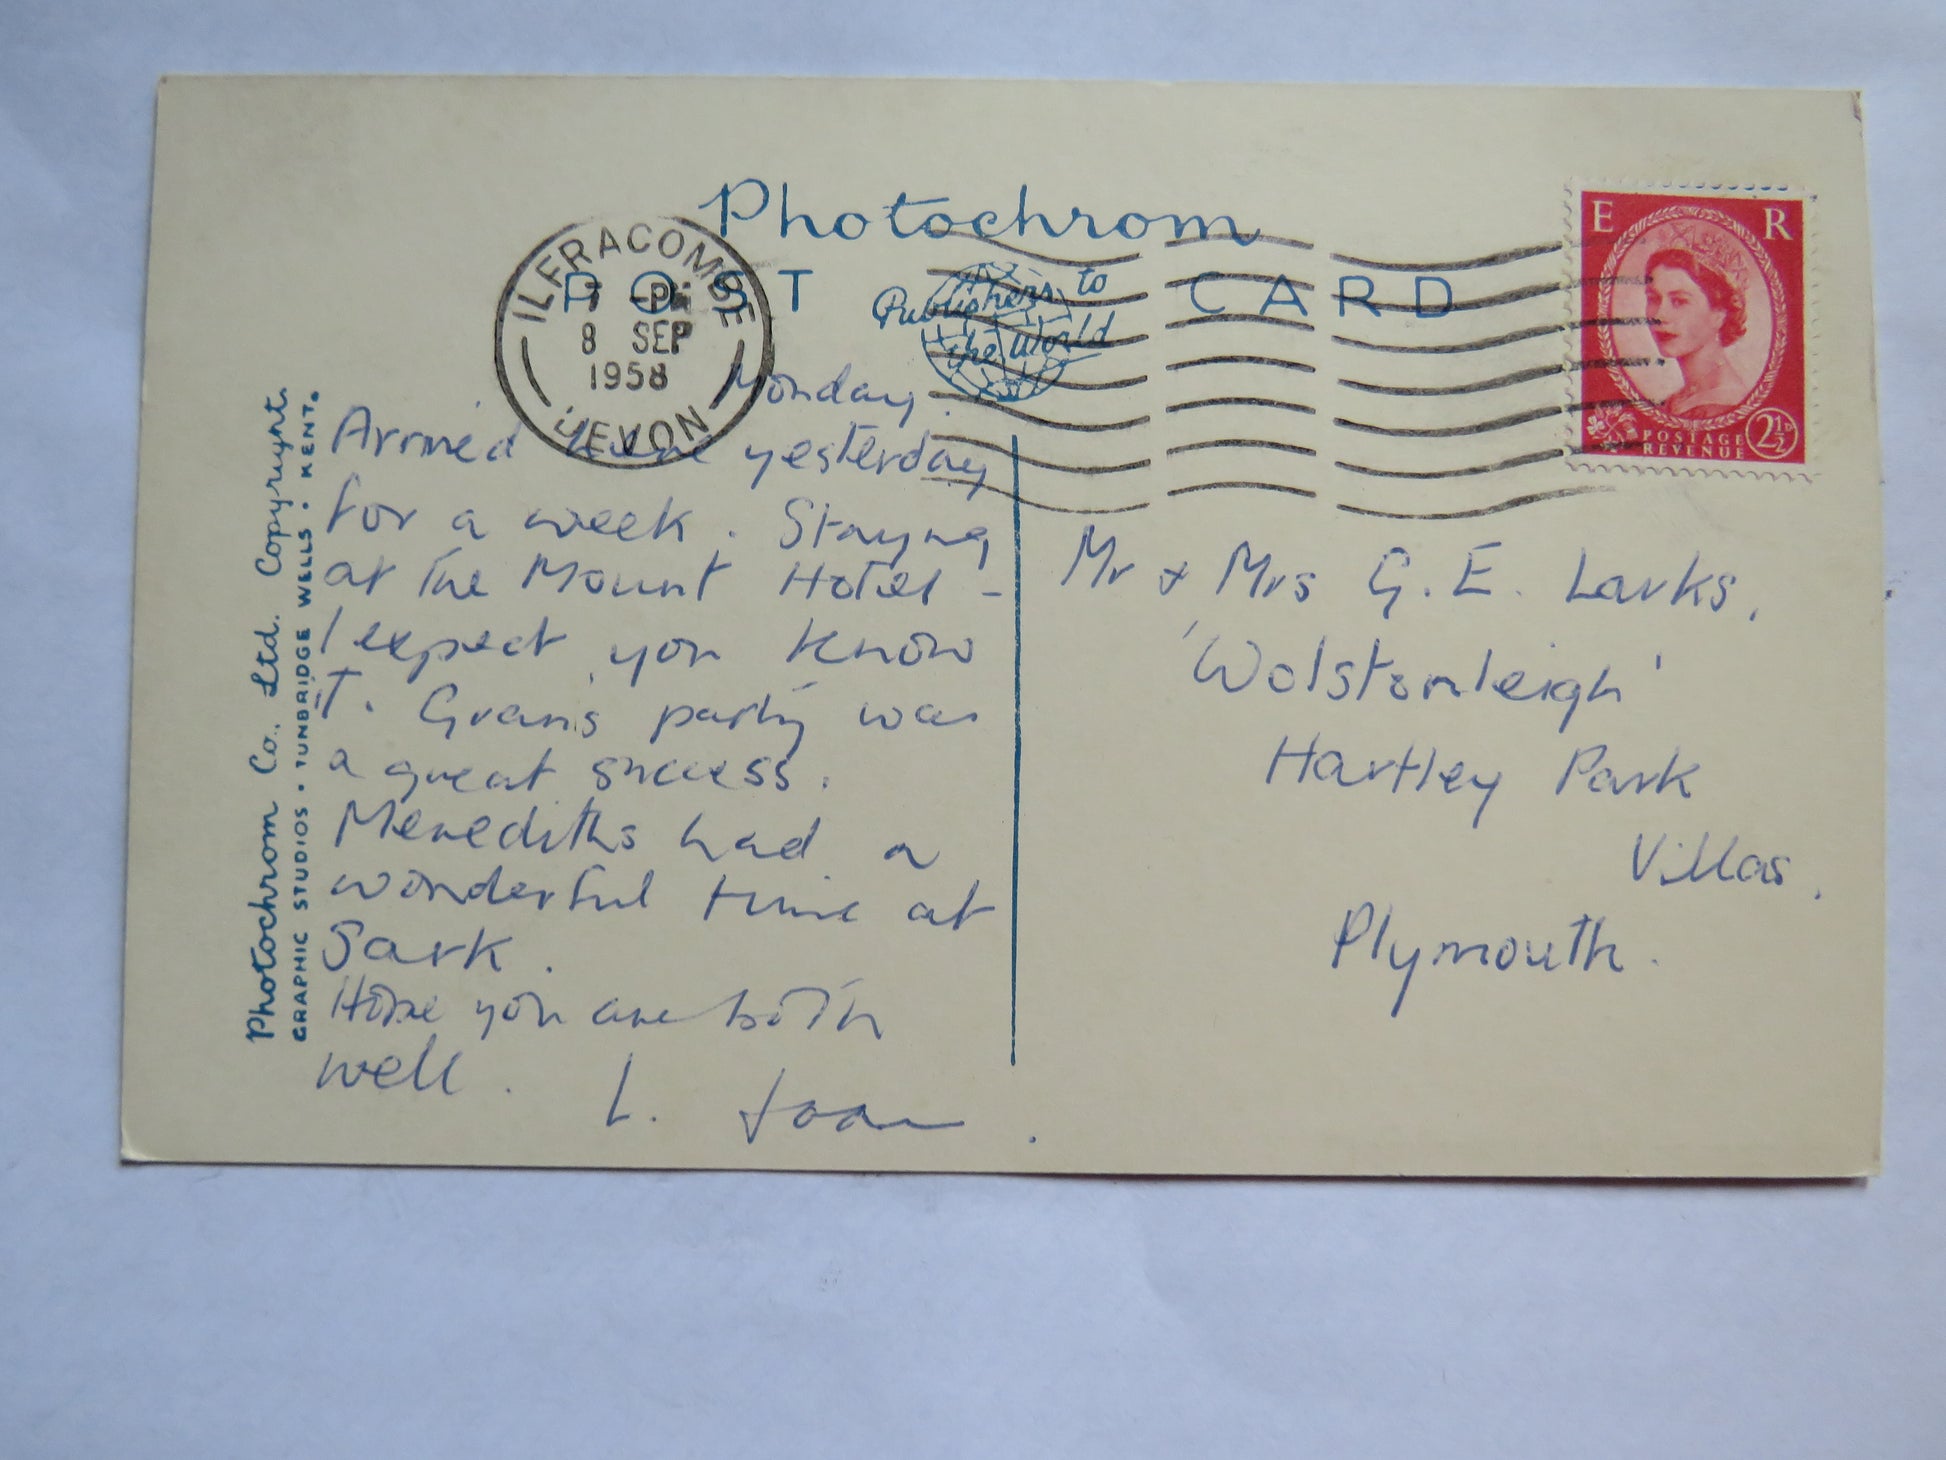 Photochrom
POST CARD
Publishers to
the World
ILFRACOMBE
7 - PM
8 SEP
1958
DEVON
E R
POSTAGE
REVENUE
2½D
Photochrom Co., Ltd. Copyright.
GRAPHIC STUDIOS • TUNBRIDGE WELLS • KENT.
Monday.
Arrived here yesterday
for a week. Staying
at the Mount Hotel -
I expect you know
it. Gran's party was
a great success.
Merediths had a
wonderful time at
Sark.
Hope you are both
well.
L. Joan.
Mr & Mrs G. E. Larks,
'Wolstonleigh'
Hartley Park
Villas.
Plymouth.